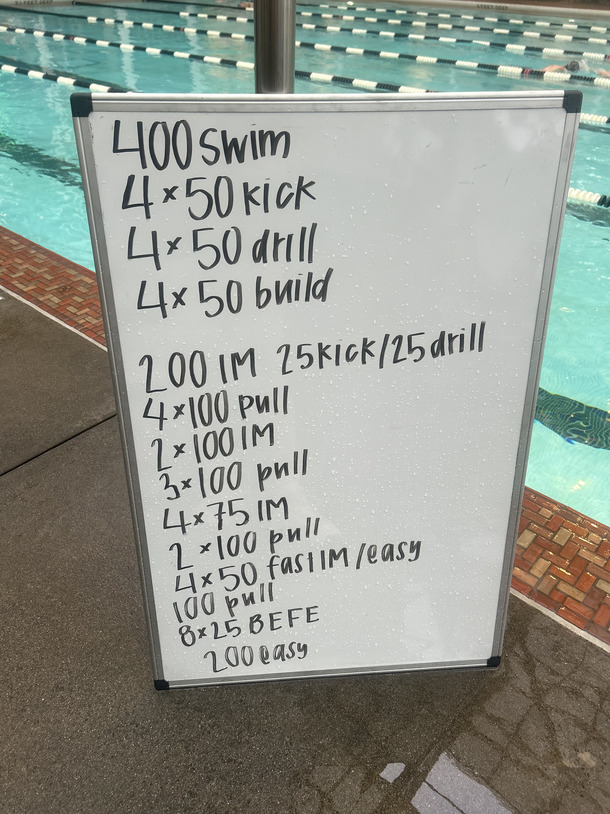 400 swim
4 x 50 kick
4 x 50 drill
4 x 50 build
200 IM 25kick/25drill
4 x 100 pull
2 x 100 IM
3 x 100 pull
4 x 75 IM
2 x 100 pull
4 x 50 fast IM / easy
100 pull
8 x 25 BEFE
200 easy